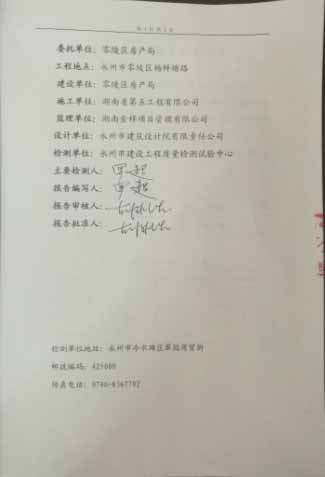 委托单位：零陵区房产局
工程地点：永州市零陵区杨梓塘路
建设单位：零陵区房产局
施工单位：湖南省第五工程有限公司
监理单位：湖南金样项目管理有限公司
设计单位：永州市建筑设计院有限责任公司
检测单位：永州市建设工程质量检测试验中心
主要检测人：
报告编写人：
报告审核人：
报告批准人：
检测单位地址：永州市冷水滩区
邮政编码：425000
传真电话：0746-8367792